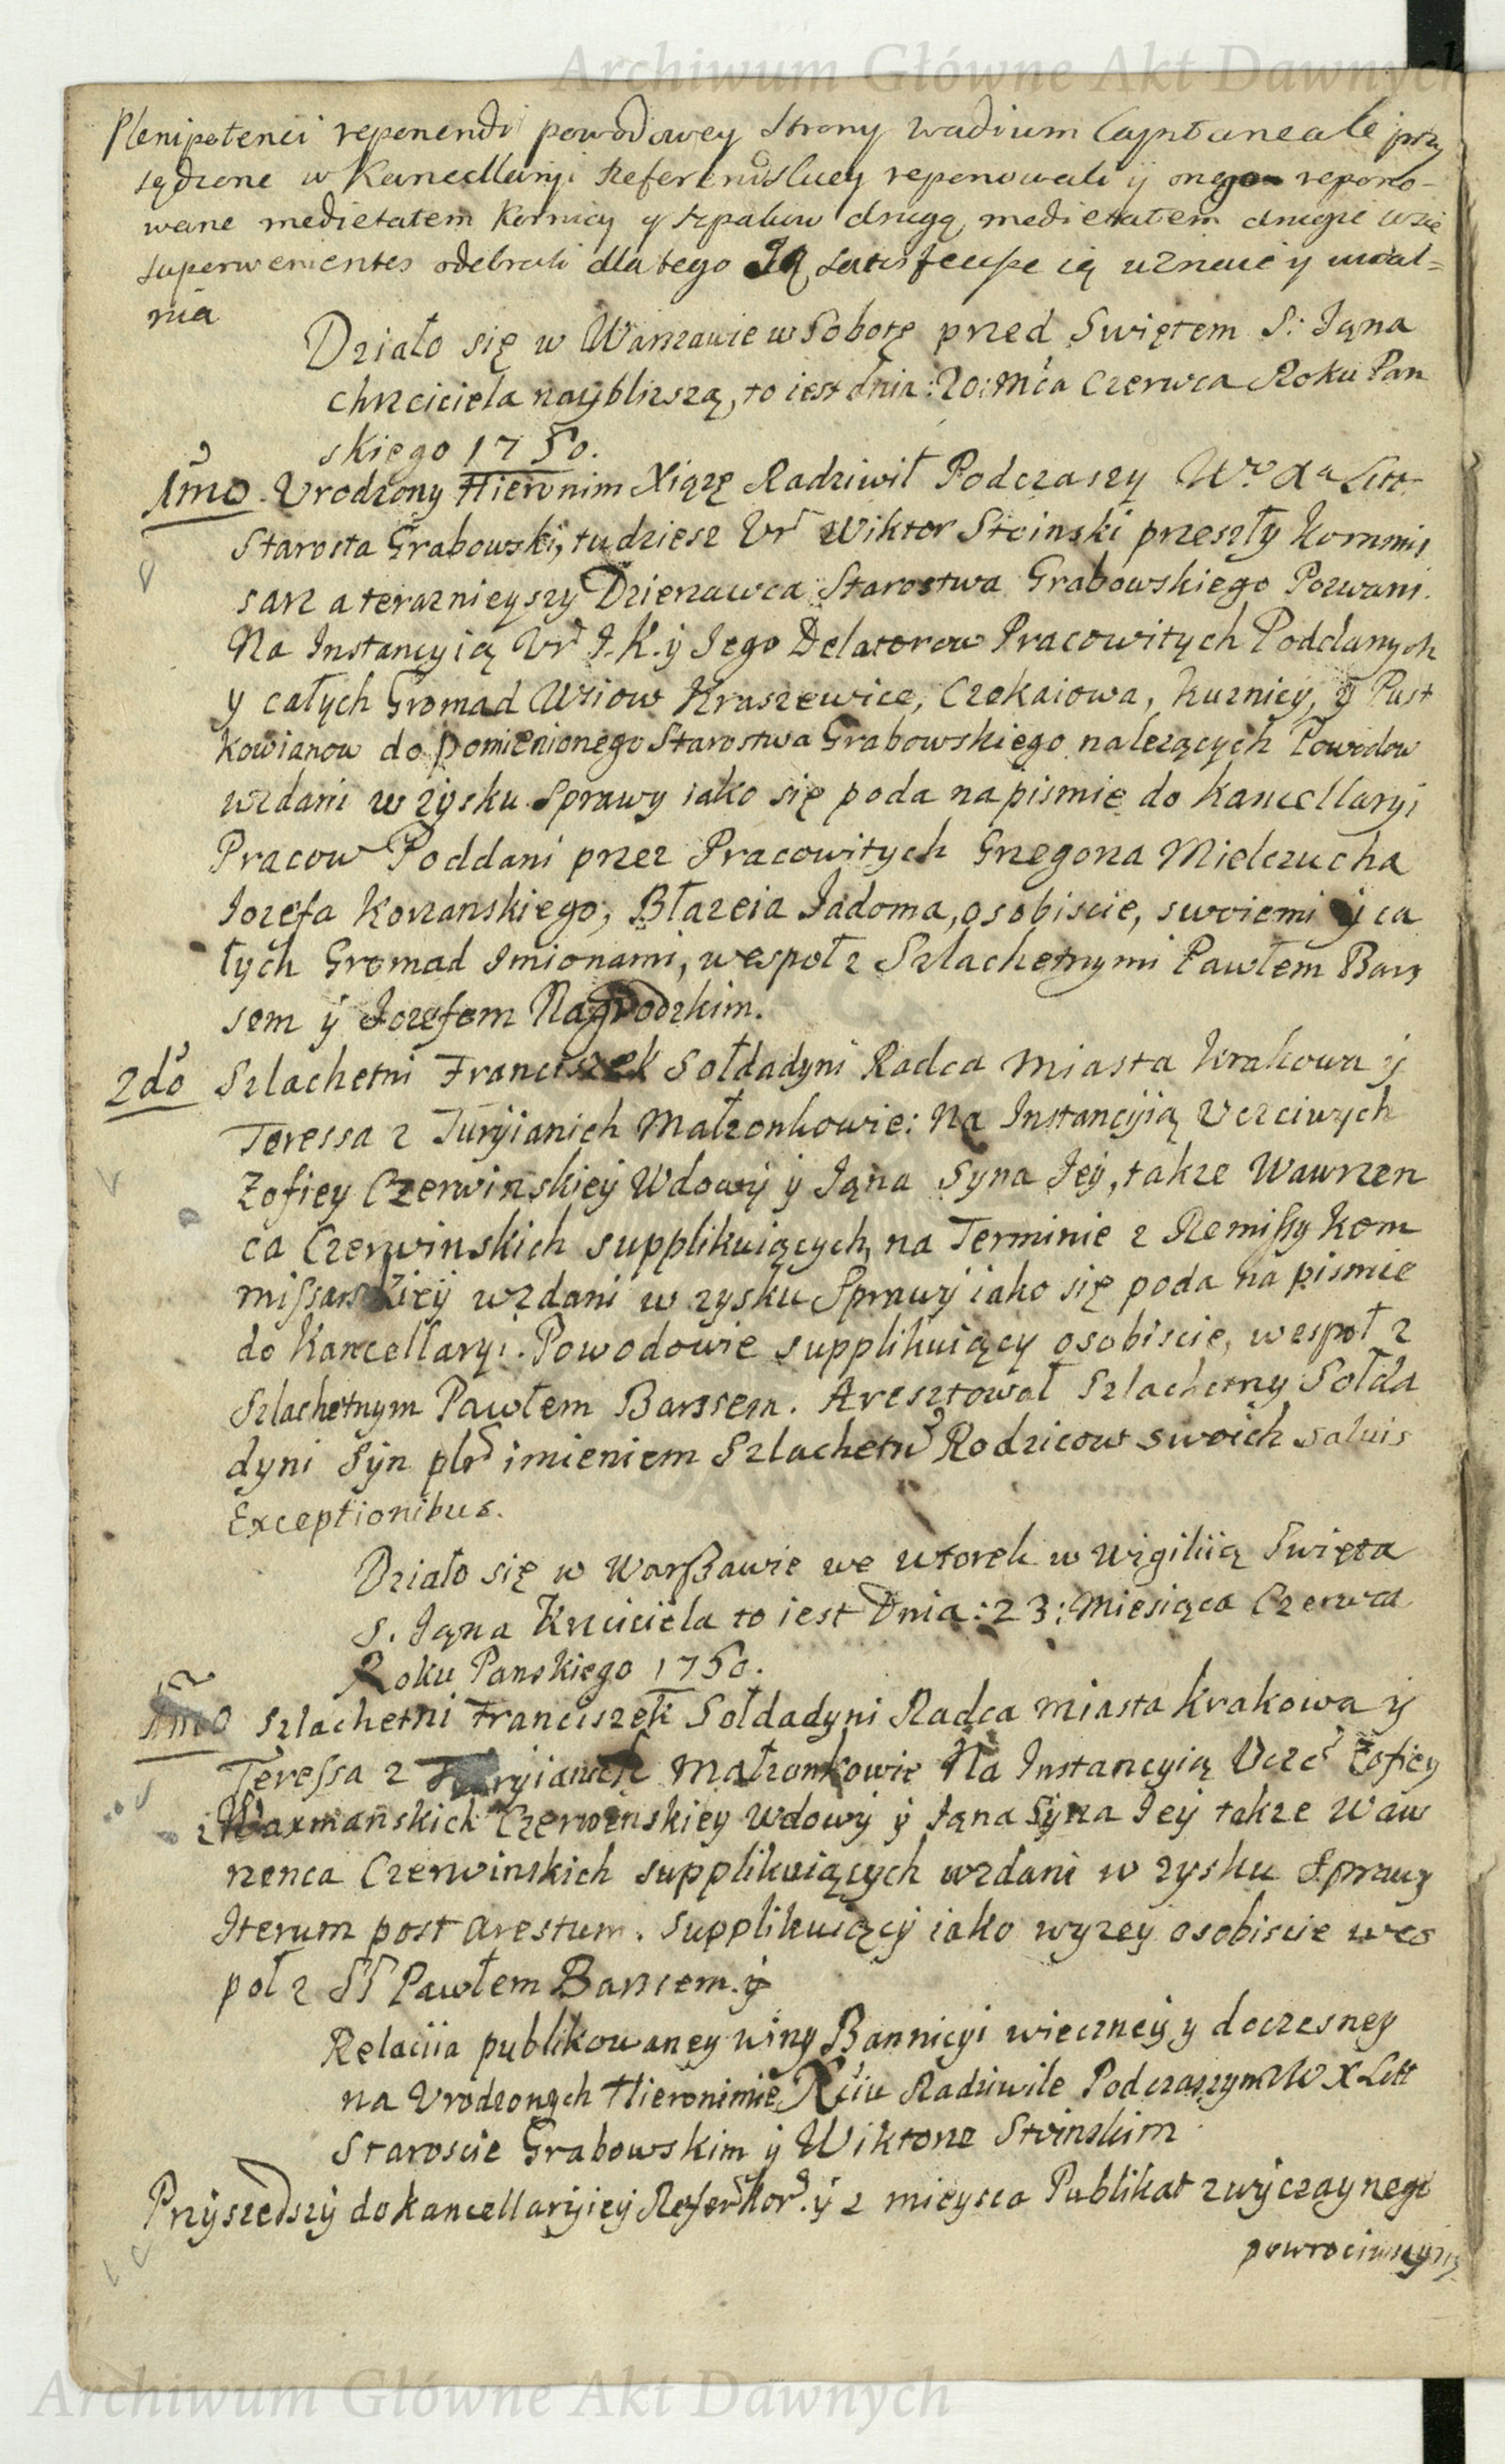 Archiwum Główne Akt Dawnych
Plenipotenci reponendi powodowey Strony wadium Capitaneale przy
sądzone w Kancellaryi reponowali y onego repono-
wane medietatem Kornicy y Szpakow drugą medietatem drugie wsie
superwenientes odebrali dlatego Ią Satisfakce ią uznaie y uwal=
nia
Działo się w Warszawie w Sobotę przed Swiętem S: Iąna
chrzciciela naybliższą, to iest dnia: 20: Mca Czerwca Roku Pan
skiego 1750.
1mo. Urodzony Hieronim Xiąże Radziwił Podczaszy Wo Xa Litt
Starosta Grabowski, tudziesz Ur Wiktor Stoinski przeszły Kommis
sarz a teraznieyszy Dzierzawca Starostwa Grabowskiego Pozwani.
Na Instancyią Ur I.K. y Iego Delatorow Pracowitych Poddanych
y całych Gromad Wsiow Kraszewice, Czekaiowa, Kuznicy, y Pust
kowianow do pomienionego Starostwa Grabowskiego należących Powodow
wzdani w zysku Sprawy iako się poda na pismie do kancellaryi
Pracow Poddani przez Pracowitych Grzegorza Mielczucha
Iozefa Korzanskiego, Błazeia Jadoma, osobiscie, swoiemi y ca
łych Gromad Imionami, wespoł z Szlachetnymi Pawłem Bars
sem y Iozefem Nagrodzkim.
2do Szlachetni Franciszek Sołdadyni Radca Miasta Krakowa y
Teressa z Turyianich Małzonkowie: Na Instancyią Uczciwych
Zofiey Czerwinskiey Wdowy y Iąna Syna Iey, takze Wawrzen
ca Czerwinskich supplikuiących, na Terminie z Remissy Kom
missarskiey wzdani w zysku Sprawy iako się poda na pismie
do Kancellaryi. Powodowie supplikuiący osobiscie, wespoł z
Szlachetnym Pawłem Barssem. Aresztował Szlachetny Sołda
dyni Syn plr imieniem Szlachetn Rodzicow swoich salvis
Exceptionibus.
Działo się w Warszawie we wtorek w Wigiliią Swięta
S. Iąna Krzciciela to iest Dnia: 23: Miesiąca Czerwca
Roku Panskiego 1750.
1mo Szlachetni Franciszek Sołdadyni Radca Miasta Krakowa y
Teressa z Turyianich Małzonkowie Na Instancyią Uczc Zofiey
z Waxmanskich Czerwinskiey Wdowy y Iąna Syna Iey takze Waw
rzenca Czerwinskich supplikuiących wzdani w zysku Sprawy
Iterum post arestum. Supplikuiący iako wyzey osobiscie wes
poł z Sl Pawłem Barssem. y
Relaciia publikowaney winy Bannicyi wieczney y doczesney
na Urodzonych Hieronimie Xciu Radziwile Podczaszym W X Litt
Staroscie Grabowskim y Wiktorze Stoinskim
Przyszedszy do kancellaryiey Refer Kor. y z mieysca Publikat zwyczaynego
powrociwszy
Archiwum Główne Akt Dawnych